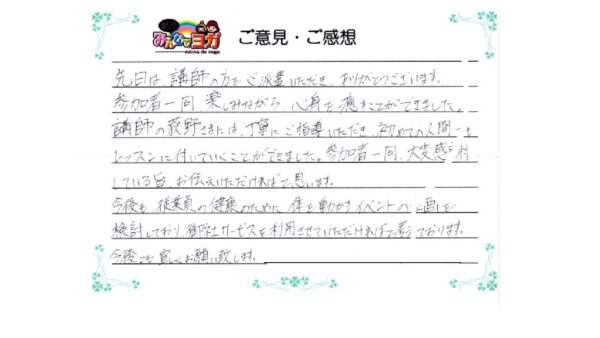 みんなでヨガ
minna de yoga
ご意見・ご感想
先日は 講師の方をご派遣いただき、ありがとうございます。
参加者一同 楽しみながら 心身を癒すことができました。
講師の荻野さまには、丁寧にご指導いただき、初めての人間も
レッスンに付いていくことができました。参加者一同、大変感謝
している旨、お伝えいただければと思います。
今後も 従業員の健康のために 体を動かすイベントの企画を
検討しており 御社サービスを利用させていただければと考えております。
今後とも宜しくお願い致します。